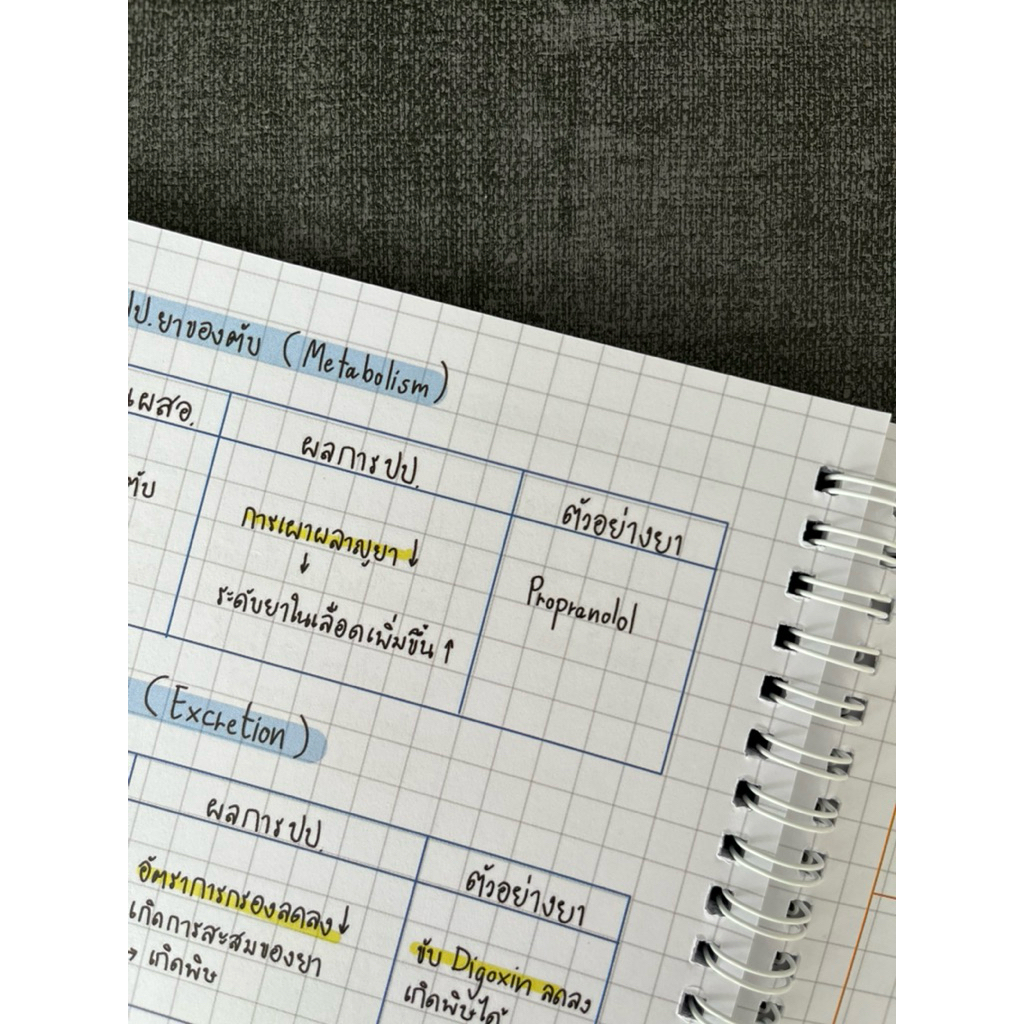 ปป.ยาของตับ (Metabolism)
ผลการปป.
ตัวอย่างยา
การเผาผลาญยา↓
↓
ระดับยาในเลือดเพิ่มขึ้น ↑
Propranolol
(Excretion)
ผลการปป.
ตัวอย่างยา
อัตราการกรองลดลง↓
เกิดการสะสมของยา
→ เกิดพิษ
ขับ Digoxin ลดลง
เกิดพิษได้